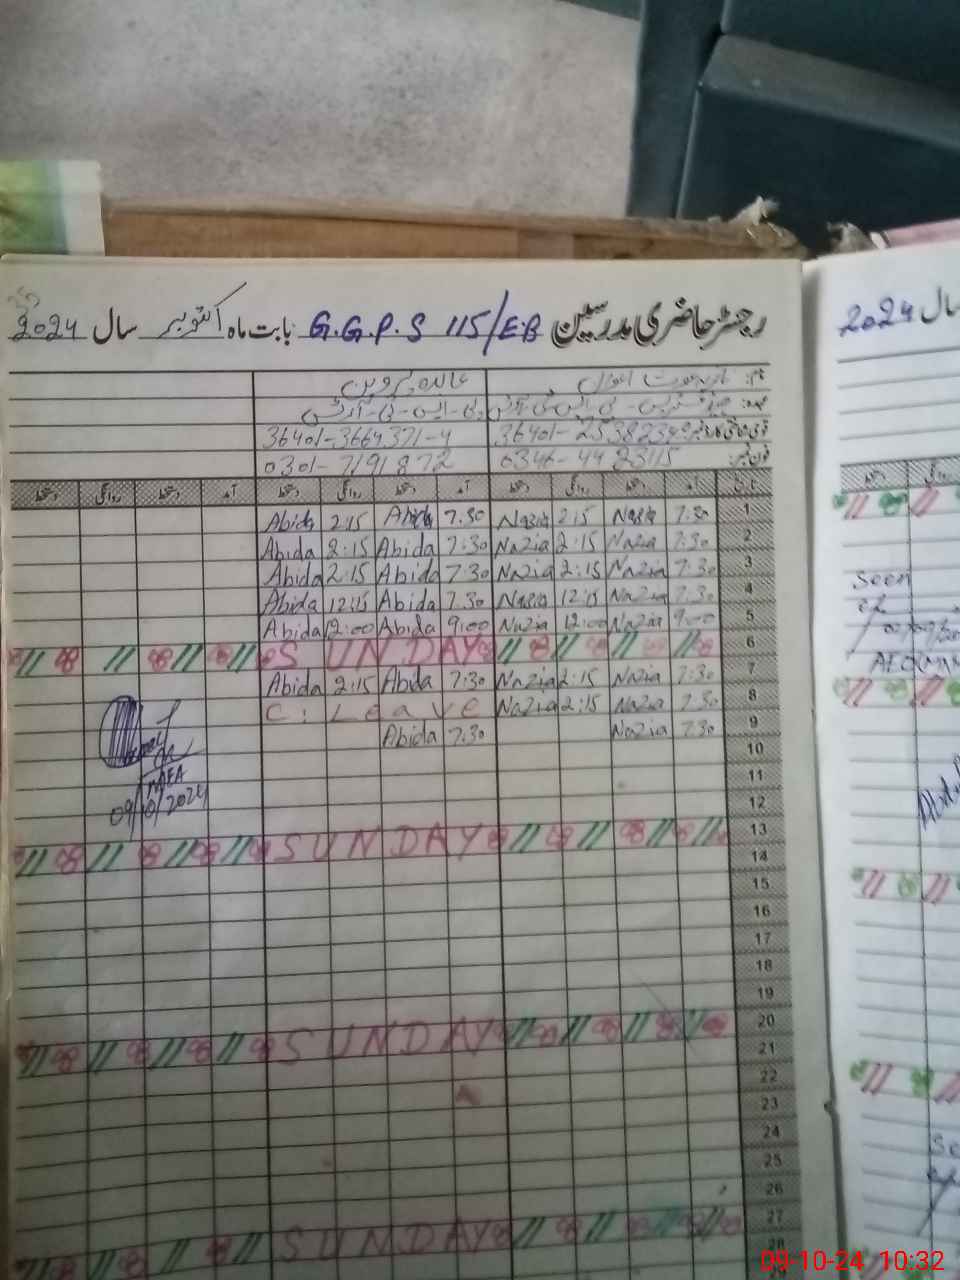 رجسٹر حاضری مدرسین G.G.P.S 115/E.B بابت ماہ اکتوبر سال 2024
نام: عابدہ پروین
عہدہ:
36401-3664371-4
فون نمبر: 0346-4423115 0301-7191872
تاریخ آمد دستخط روانگی دستخط آمد دستخط روانگی دستخط آمد دستخط روانگی دستخط
1 7:30 Nazia 2:15 Nazia 7:30 Abida 2:15 Abida
2 7:30 Nazia 2:15 Nazia 7:30 Abida 2:15 Abida
3 7:30 Nazia 2:15 Nazia 7:30 Abida 2:15 Abida
4 7:30 Nazia 12:15 Nazia 7:30 Abida 12:15 Abida
5 9:00 Nazia 12:00 Nazia 9:00 Abida 12:00 Abida
6 SUNDAY
7 7:30 Nazia 2:15 Nazia 7:30 Abida 2:15 Abida
8 7:30 Nazia 2:15 Nazia C. Leave
9 7:30 Nazia 7:30 Abida
10
11
12
MEA
09/10/2024
13 SUNDAY
14
15
16
17
18
19
20 SUNDAY
21
22
23
24
25
26
27 SUNDAY
28
سال 2024
Seen
09-10-24 10:32